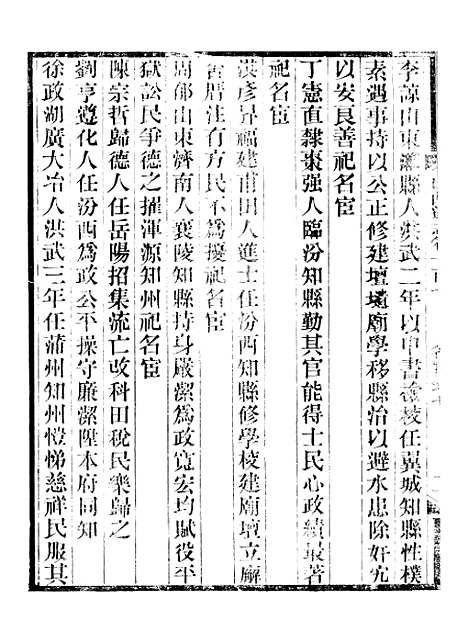 李諒山東濰縣人洪武二年以中書僉校任翼城知縣性樸
素遇事持以公正修建壇壝廟學移縣治以避水患除奸宄
以安良善祀名宦
丁憲直隸棗强人臨汾知縣勤其官能得士民心政績最著
祀名宦
彥昇福建莆田人進士任汾西知縣修學校建廟壇立廨
舍厝注有方民不為擾祀名宦
周郁山東濟南人襄陵知縣持身嚴潔為政寬宏均賦役平
獄訟民爭德之擢渾源知州祀名宦
陳宗哲歸德人任岳陽招集流亡改科田稅民樂歸之
劉亨遵化人任汾西為政公平操守廉潔陞本府同知
徐政湖廣大冶人洪武三年任蒲州知州愷悌慈祥民服其